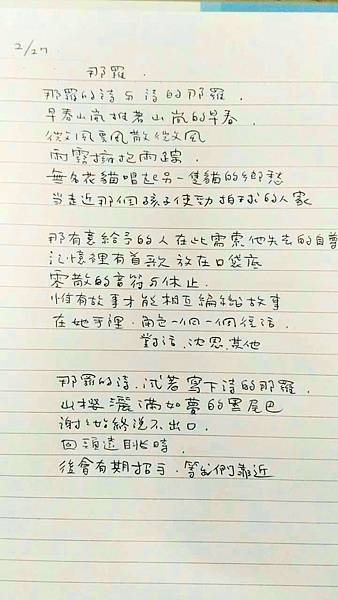 2/27
那羅.
那羅的詩与詩的那羅.
早春山嵐推著山嵐的早春.
從風裏風散從風
雨霧擁抱雨霧.
無名花貓唱起另一隻貓的鄉愁
當走近那個孩子使勁拍球的人家
那有意給予的人在此需索他失去的自尊
記憶裡有首歌放在口袋底
零散的音符与休止.
惟有故事才能相互編織故事
在她手裡.角色一個一個復活.
對話.沈思.其他
那羅的詩.試著寫下詩的那羅.
山櫻灑滿如夢的黑尾巴
謝始終說不出口.
回頭遠眺時.
後會有期招手.等我們靠近